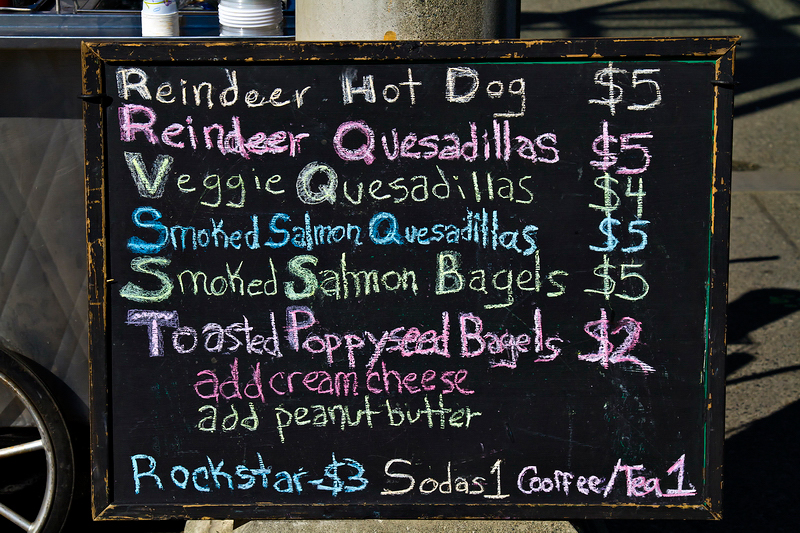 Reindeer Hot Dog $5
Reindeer Quesadillas $5
Veggie Quesadillas $4
Smoked Salmon Quesadillas $5
Smoked Salmon Bagels $5
Toasted Poppyseed Bagels $2
add cream cheese
add peanut butter
Rockstar-$3 Sodas 1 Cooffee/Tea 1